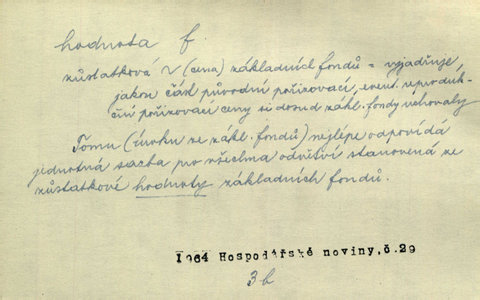 hodnota f.
zůstatková v (cena) základních fondů = vyjadřuje
jakou část původní pořizovací, event. reproduk-
ční pořizovací ceny si dosud zákl. fondy uchovaly
Tomu (úroku ze zákl. fondů) nejlépe odpovídá
jednotná sazba pro všechna odvětví stanovená ze
zůstatkové hodnoty základních fondů.
1964 Hospodářské noviny,č.29
3b